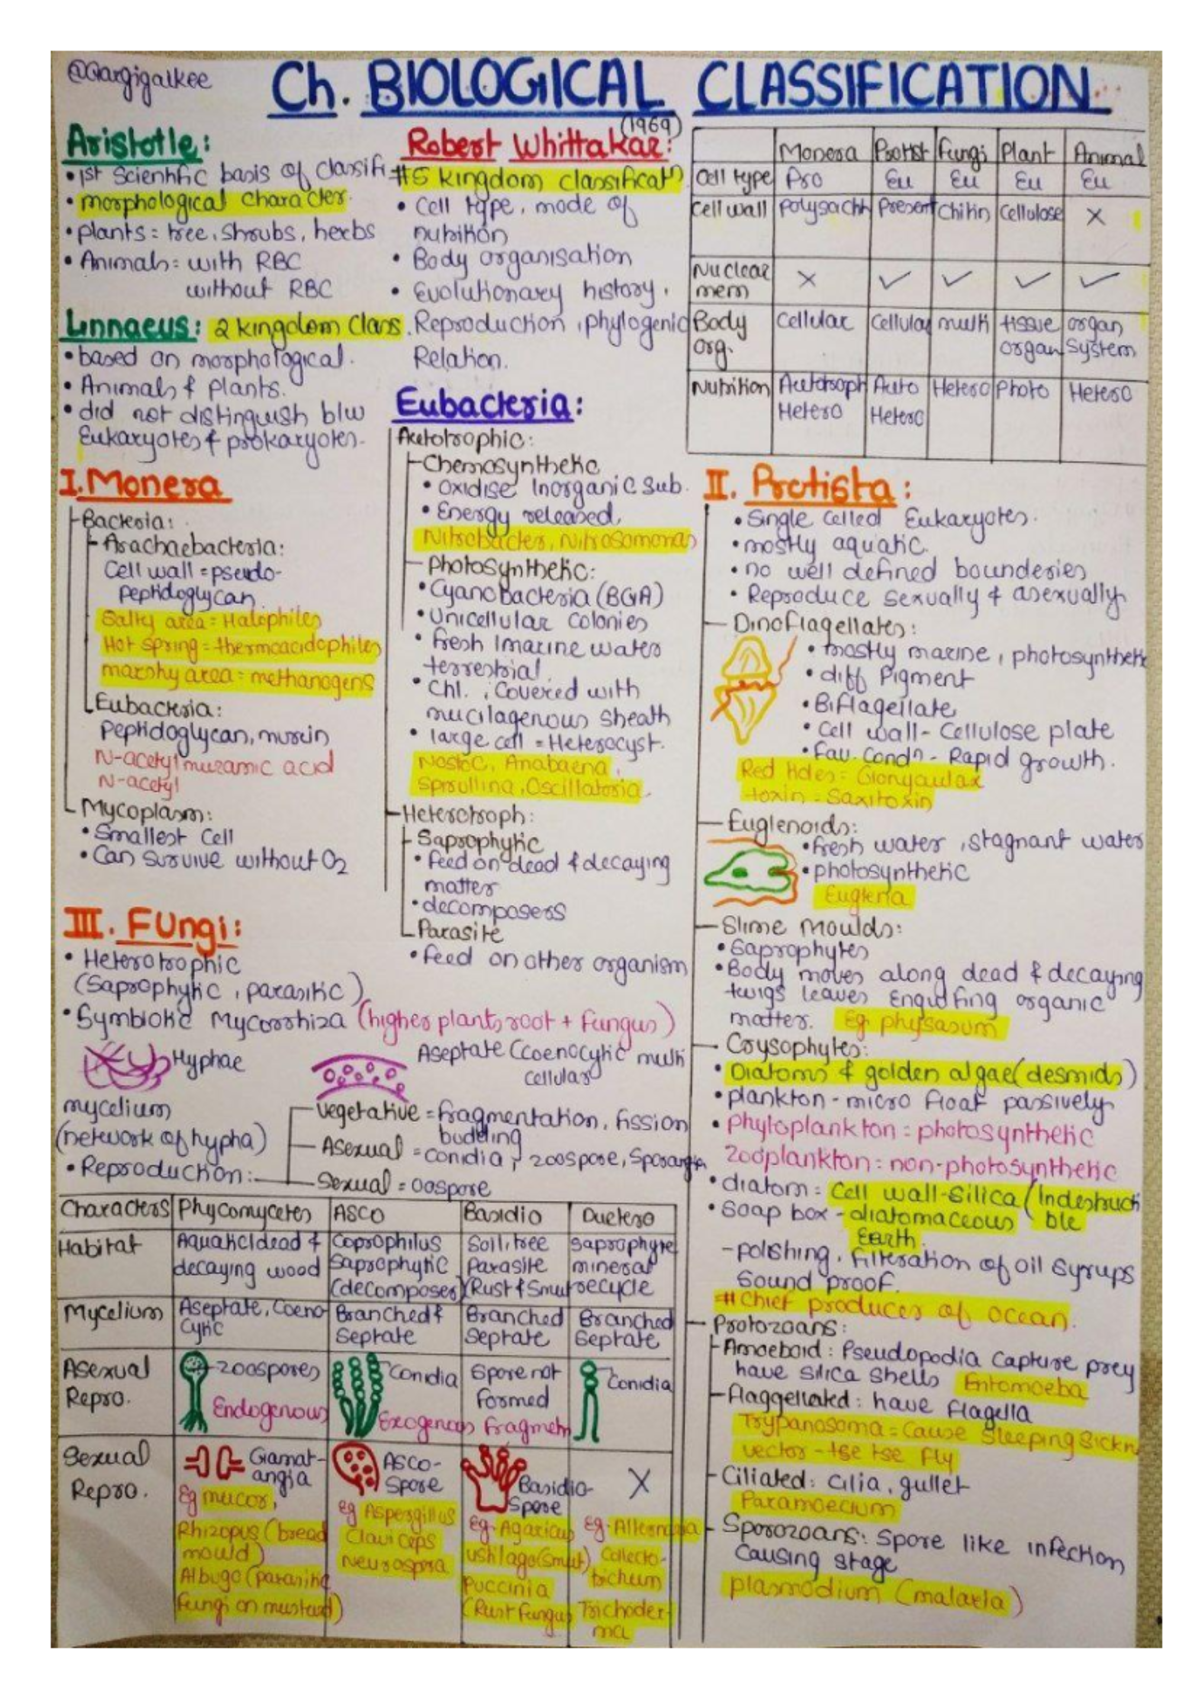 @Gargigalkee
Ch. BIOLOGICAL CLASSIFICATION
Aristotle:
• 1st Scientific basis of Classifi
• morphological character.
• plants = tree, shrubs, herbs
• Animals = with RBC
without RBC
Linnaeus: 2 kingdom Class.
• based on morphological.
• Animals & plants.
• did not distinguish b/w
Eukaryotes & prokaryotes.
Robert Whittakar: (1969)
#5 kingdom classificatn
• Cell type, mode of
nutrition
• Body organisation
• Evolutionary history,
Reproduction, phylogenic
Relation.
Monera Protist Fungi Plant Animal
Cell type Pro Eu Eu Eu Eu
Cell wall polysachh Present Chitin Cellulose X
Nuclear
mem X ✓ ✓ ✓ ✓
Body
org. Cellular Cellular multi tissue
organ organ
System
Nutrition Autotroph
Hetero Auto
Hetero Hetero Photo Hetero
I. Monera
Bacteria:
Arachaebacteria:
Cell wall = pseudo-
peptidoglycan
Salty area = Halophiles
Hot spring = thermoacidophiles
marshy area = methanogens
Eubacteria:
Peptidoglycan, murein
N-acetyl muramic acid
N-acetyl
Mycoplasm:
• Smallest Cell
• Can survive without O2
Eubacteria:
Autotrophic:
Chemosynthetic
• Oxidise Inorganic Sub.
• Energy released,
Nitrobacter, Nitrosomonas
Photosynthetic:
• Cyanobacteria (BGA)
• Unicellular colonies
• fresh / marine water
terrestrial.
• Chl., Covered with
mucilagenous sheath
• large cell = Heterocyst.
Nostoc, Anabaena,
Sprullina, Oscillatoria.
Heterotroph:
Saprophytic
• feed on dead & decaying
matter
• decomposers
Parasite
• feed on other organism
II. Protista:
• Single celled Eukaryotes.
• mostly aquatic
• no well defined bounderies
• Reproduce sexually & asexually
Dinoflagellates:
• mostly marine, photosynthetic
• diff Pigment
• Biflagellate
• Cell wall - Cellulose plate
• Fav. Condn - Rapid growth.
Red tides = Gonyaulax
toxin = Saxitoxin
Euglenoids:
• fresh water, stagnant water
• photosynthetic
Euglena
Slime Moulds:
• Saprophytes
• Body moves along dead & decaying
twigs leaves Engulfing organic
matter. Eg. physarum
Crysophytes:
• Diatoms & golden algae (desmids)
• plankton - micro float passively
• phytoplankton = photosynthetic
zooplankton = non-photosynthetic
• diatom = Cell wall-Silica (Indestructi
ble
• soap box - diatomaceous
Earth.
- polishing, filteration of oil syrups
Sound proof.
# Chief producer of ocean.
Protozoans:
Amoeboid: Pseudopodia capture prey
have silica shells Entomoeba
Flaggellated: have flagella
Trypanosoma = Cause Sleeping Sickn
vector - tse tse fly
Ciliated: Cilia, gullet
Paramoecium
Sporozoans: Spore like infection
Causing stage
plasmodium (malaria)
III. Fungi:
• Heterotrophic
(Saprophytic, parasitic)
• Symbiotic Mycorrhiza (higher plants root + Fungus)
Hyphae
Aseptate (coenocytic multi
cellular
mycelium
(network of hypha)
• Reproduction:
Vegetative = fragmentation, fission
budding
Asexual = conidia, zoospore, Sporangia
Sexual = oospore
Characters Phycomycetes ASCO Basidio Ductero
Habitat Aquatic/dead &
decaying wood Coprophilus
Saprophytic
(decomposer) Soil, tree
Parasite
(Rust & Smut Saprophyte
mineral
recycle
Mycelium Aseptate, Coeno
Cytic Branched &
Septate Branched
Septate Branched
Septate
Asexual
Repro. Zoospores
Endogenous Conidia
Exogenous Spore not
formed
Fragmentn Conidia
Sexual
Repro. Gamat-
angia ASCO-
Spore Basidio-
Spore X
Eg mucor,
Rhizopus (bread
mould)
Albugo (parasitic
Fungi on mustard)
eg Aspergillus
Claviceps
Neurospra
Eg. Agaricus
Ustilago (Smut)
Puccinia
(Rust fungus)
Eg. Alternaria
Collecto-
trichum
Trichoder-
ma